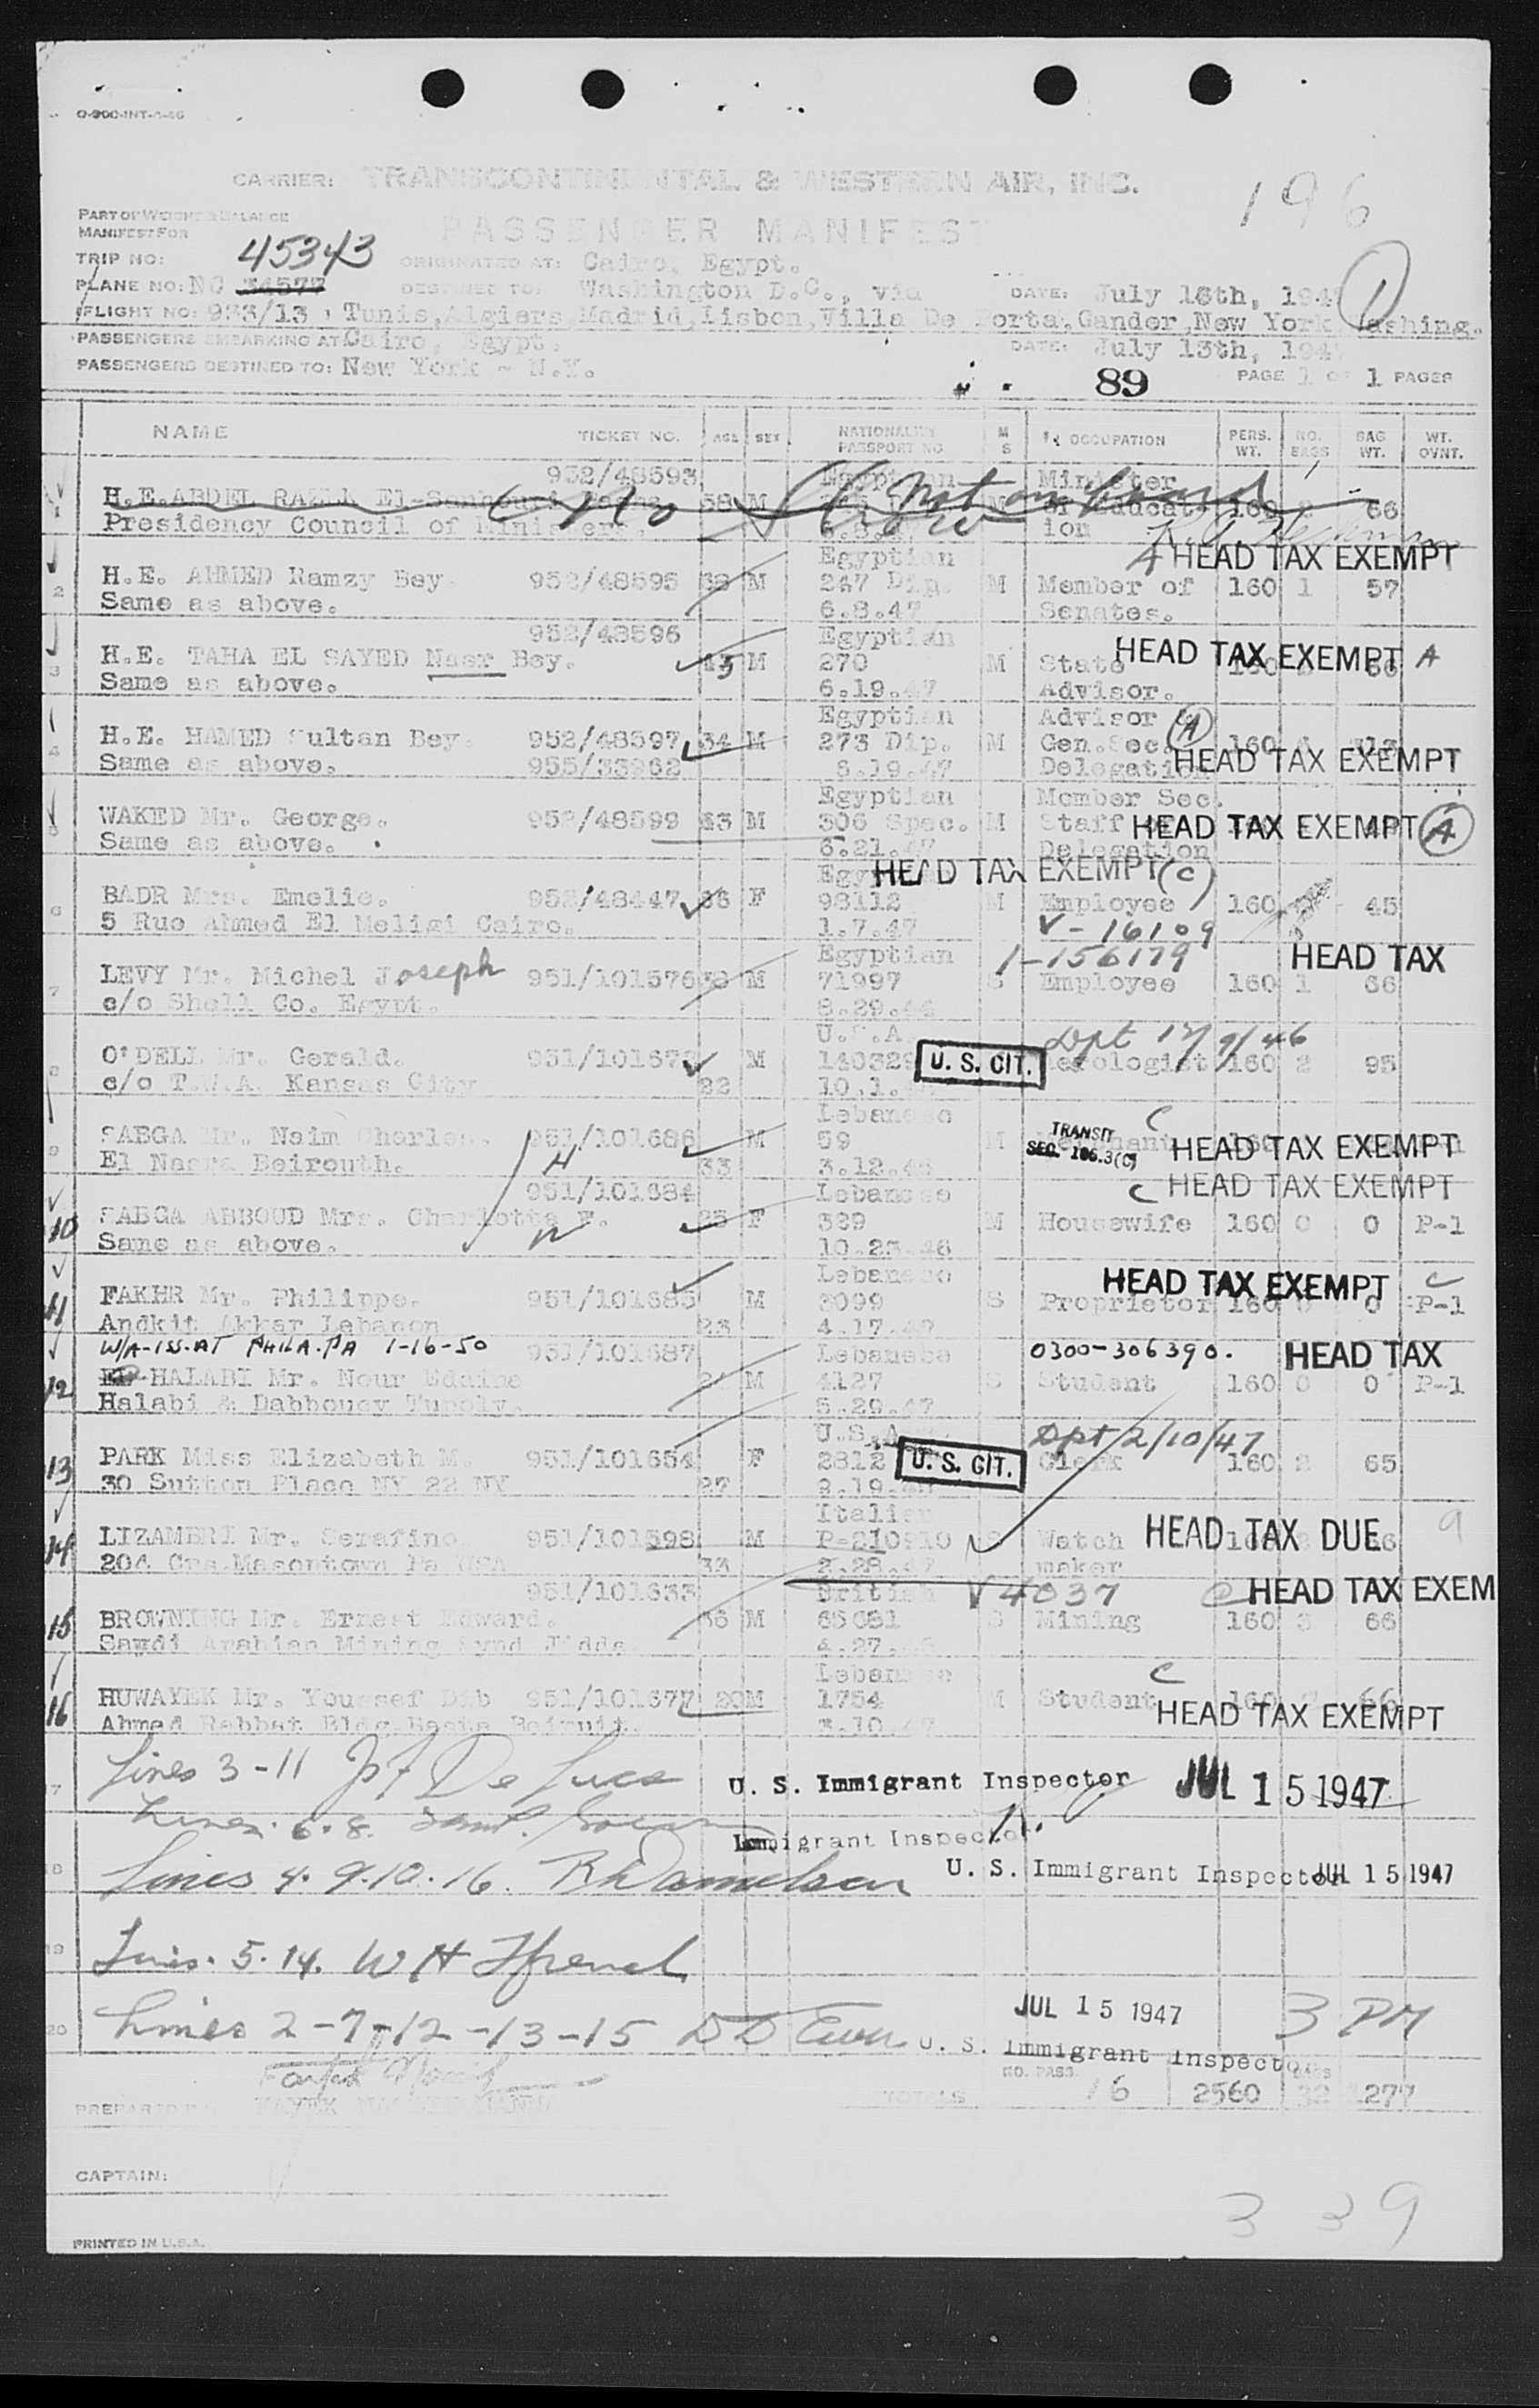 O-900-INT-4-46
CARRIER: TRANSCONTINENTAL & WESTERN AIR, INC.
196
PART OF WEIGHT & BALANCE
MANIFEST FOR
PASSENGER MANIFEST
TRIP NO: 45343 ORIGINATED AT: Cairo, Egypt.
PLANE NO: NC 34577 DESTINED TO: Washington D.C., via DATE: July 13th, 194 1
FLIGHT NO: 933/13 Tunis, Algiers, Madrid, Lisbon, Villa De Porta, Gander, New York, Washing.
PASSENGERS EMBARKING AT: Cairo, Egypt. DATE: July 13th, 194
PASSENGERS DESTINED TO: New York - N.Y. 89 PAGE 1 OF 1 PAGES
NAME TICKET NO. AGE SEX NATIONALITY PASSPORT NO M S OCCUPATION PERS. WT. NO. BAGS BAG WT. WT. OVNT.
952/48593 Egyptian Minister
H.E. ABDEL RAZEK El-Sanhouri 58 M M of Educat- 160 2 66
No Show Not on board
Presidency Council of Ministers. ion
Egyptian A HEAD TAX EXEMPT
2 H.E. AHMED Ramzy Bey. 952/48595 38 M 247 Dip. M Member of 160 1 57
Same as above. 6.8.47 Senates.
952/48596 Egyptian
3 H.E. TAHA EL SAYED Nasr Bey. 43 M 270 M State 160 66 HEAD TAX EXEMPT A
Same as above. 6.19.47 Advisor.
Egyptian Advisor & A
4 H.E. HAMED Sultan Bey. 952/48597 34 M 273 Dip. M Gen.Sec. 160
Same as above. 955/33962 6.19.47 Delegation HEAD TAX EXEMPT
Egyptian Member Sec.
5 WAKED Mr. George. 952/48599 43 M 306 Spec. M Staff HEAD TAX EXEMPT A
Same as above. 6.21.47 Delegation
Egyptian HEAD TAX EXEMPT (C)
6 BADR Mrs. Emelie. 952/48447 36 F 98112 M Employee 160 45
5 Rue Ahmed El Meligi Cairo. 1.7.47 V-16109
Egyptian 1-156179 HEAD TAX
7 LEVY Mr. Michel Joseph 951/101576 38 M 71997 S Employee 160 1 66
c/o Shell Co. Egypt. 8.29.46
U.S.A. Dpt 17/9/46
8 O'DELL Mr. Gerald. 951/101673 M 140329 U. S. CIT. Aerologist 160 2 95
c/o T.W.A. Kansas City 22 10.1.
Lebanese C
9 SABGA Mr. Naim Charles. 951/101686 M 59 M Merchant TRANSIT SEC. 186.3(C) HEAD TAX EXEMPT
El Nasra Beirouth. H 33 3.12.46
951/101684 Lebanese C HEAD TAX EXEMPT
10 SABGA ABBOUD Mrs. Charlotte F. W 25 F 329 M Housewife 160 0 0 P-1
Same as above. 10.23.46
Lebanese HEAD TAX EXEMPT C
11 FAKHR Mr. Philippe. 951/101685 M 3099 S Proprietor 160 0 0 P-1
Andkit Akkar Lebanon 23 4.17.47
W/A-ISS.AT PHILA.PA 1-16-50 951/101687 Lebanese 0300-306390. HEAD TAX
12 HALABI Mr. Nour Eddine 21 M 4127 S Student 160 0 0 P-1
Halabi & Dabboucy Tupoly. 5.29.47
U.S.A. Dpt 2/10/47
13 PARK Miss Elizabeth M. 951/101654 F 2812 U. S. CIT. Clerk 160 2 65
30 Sutton Place NY 22 NY 27
Italian
14 LIZAMBRI Mr. Serafino 951/101598 M P-210910 S Watch HEAD TAX DUE 9
204 Grs.Masontown Pa USA 33 2.28.47 maker
951/101633 British V4037 C HEAD TAX EXEM
15 BROWNING Mr. Ernest Edward. 36 M 65081 S Mining 160 3 66
Saudi Arabian Mining Synd Jidda 4.27.
Lebanese C
16 HUWAYEK Mr. Youssef Dib 951/101677 20 M 1754 M Student 160 66
Ahmed Rabbat Bldg.Basta Beiruit. 3.10.47 HEAD TAX EXEMPT
17 Lines 3-11 De Luca U. S. Immigrant Inspector JUL 15 1947
Lines. 6.8. Immigrant Inspector.
18 Lines 4.9.10.16. R Danielson U. S. Immigrant Inspector JUL 15 1947
19 Lines. 5.14. W H French
20 Lines 2-7-12-13-15 D D Ewen U. S. Immigrant Inspector JUL 15 1947 3 PM
PREPARED BY TOTALS NO. PASS. 16 2560 32 1277
CAPTAIN:
339
PRINTED IN U.S.A.